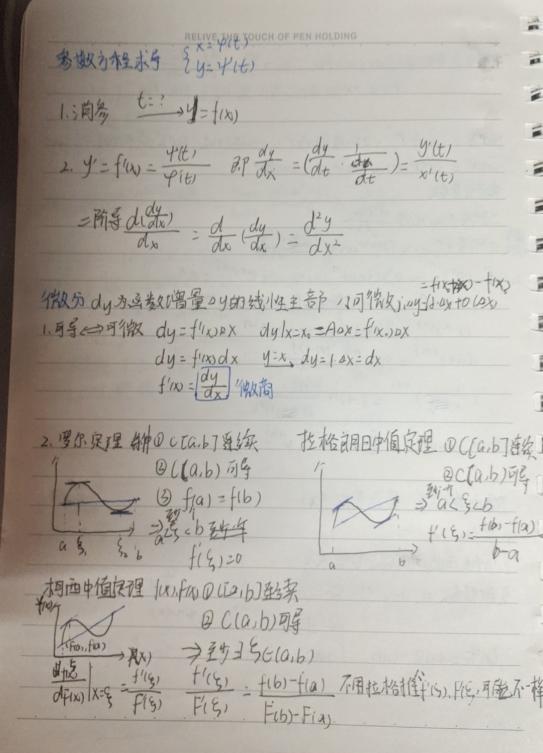 RELIVE THE TOUCH OF PEN HOLDING
参数方程求导 { x=φ(t)
y=ψ(t)
1.消参 t=? → y=f(x)
2. y'=f'(x)=ψ'(t)/φ'(t) 即 dy/dx=(dy/dt · 1/(dx/dt))=y'(t)/x'(t)
二阶导 d(dy/dx)/dx = d/dx (dy/dx) = d²y/dx²
=f(x+Δx)-f(x)
微分 dy为函数增量Δy的线性主部 (可微)
1.可导⇔可微 dy=f'(x)Δx dy|x=x₀=AΔx=f'(x₀)Δx
dy=f'(x)dx y=x, dy=1·Δx=dx
f'(x)=dy/dx 微商
2.罗尔定理 ① C[a,b]连续
② C(a,b)可导
③ f(a)=f(b)
⇒ a<ξ<b 至少
f'(ξ)=0
a ξ₁ ξ₂ b
拉格朗日中值定理 ① C[a,b]连续
② C(a,b)可导
⇒ a<ξ<b
f'(ξ)=(f(b)-f(a))/(b-a)
y
a b
柯西中值定理 f(x),F(x) ① C[a,b]连续
② C(a,b)可导
⇒ 至少∃ξ∈(a,b)
f(x)
(F(a),f(a))
F(x)
dF(x) |x=ξ = f'(ξ)/F'(ξ) f'(ξ)/F'(ξ) = (f(b)-f(a))/(F(b)-F(a)) 不用拉格 f'(ξ),F'(ξ) 可能不一样